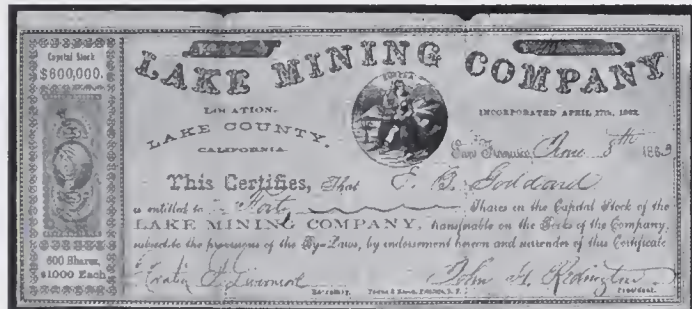 Capital Stock
$600,000.
600 Shares,
$1000 Each
LAKE MINING COMPANY
EUREKA
LOCATION,
LAKE COUNTY,
CALIFORNIA
INCORPORATED APRIL 17th, 1863
San Francisco, June 8th 1863
This Certifies, That E. B. Goddard
is entitled to Forty Shares in the Capital Stock of the
LAKE MINING COMPANY, transferable on the Books of the Company,
subject to the provisions of the By-Laws, by endorsement hereon and surrender of this Certificate
Livermore John H. Redington
Secretary. President.